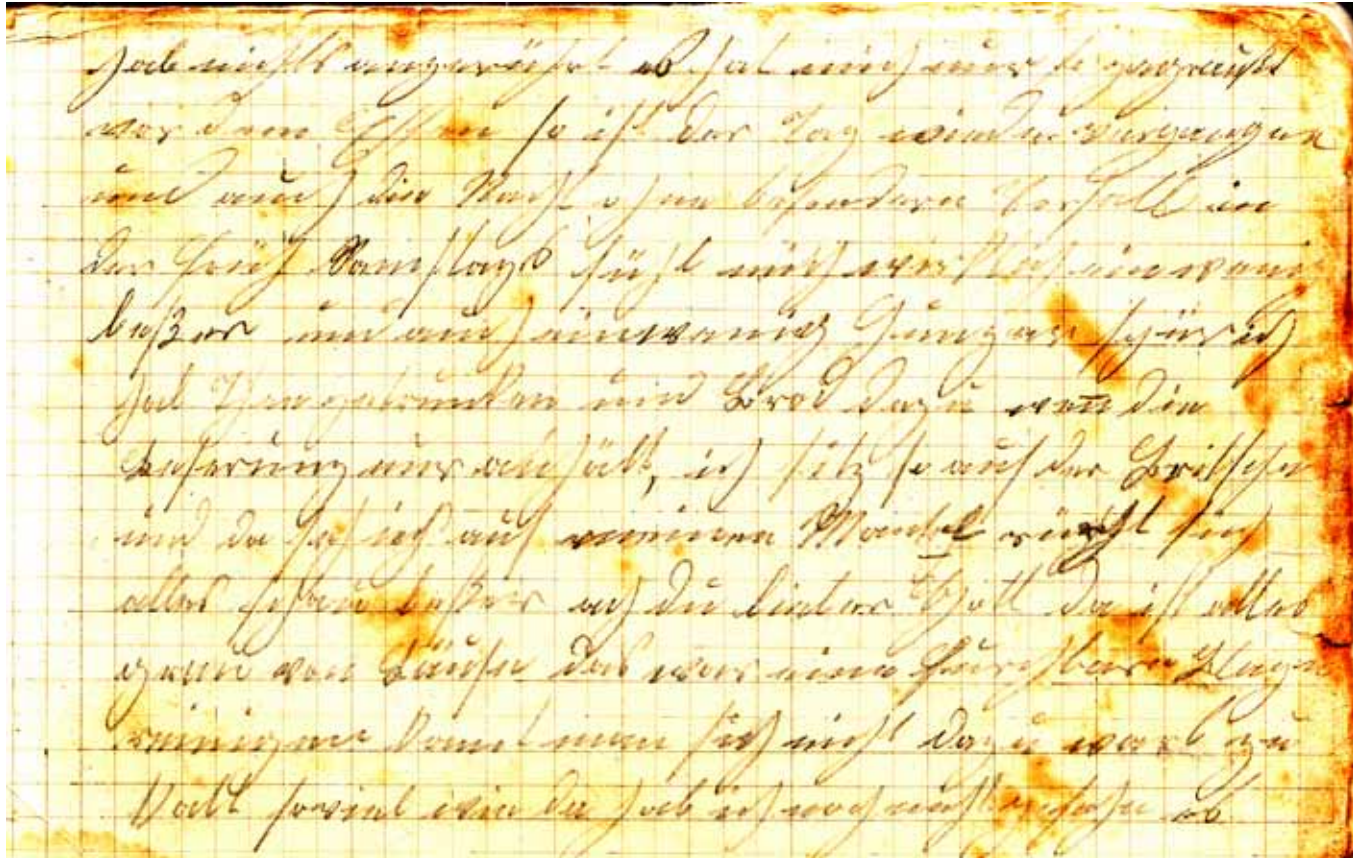 hab nichts angerührt es hat mich nur so gegraußt
vor dem Essen so ist der Tag wieder vergangen
und auch die Nacht ohne besondern Vorfall in
der Früh Samstags fühl mich wirklich ein wenig
beßer und auch ein wenig Hunger spür ich
hab Thee getrunken und Brod dazu wen die
beserung nur anhält, ich sitz so auf der Britsche
und da seh ich auf meinen Mantel rührt sich
alles schau beßer ach du lieber Gott da ist alles
grau von Läuse das war eine furchtbare Plage
reinigen kont man sich nicht dazu war es zu
kalt soviel wie da hab ich noch nicht gesehn es